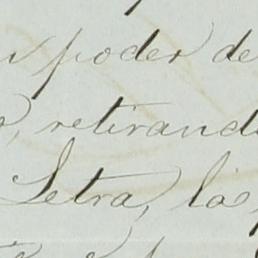 poder de
retirand
Letra, la